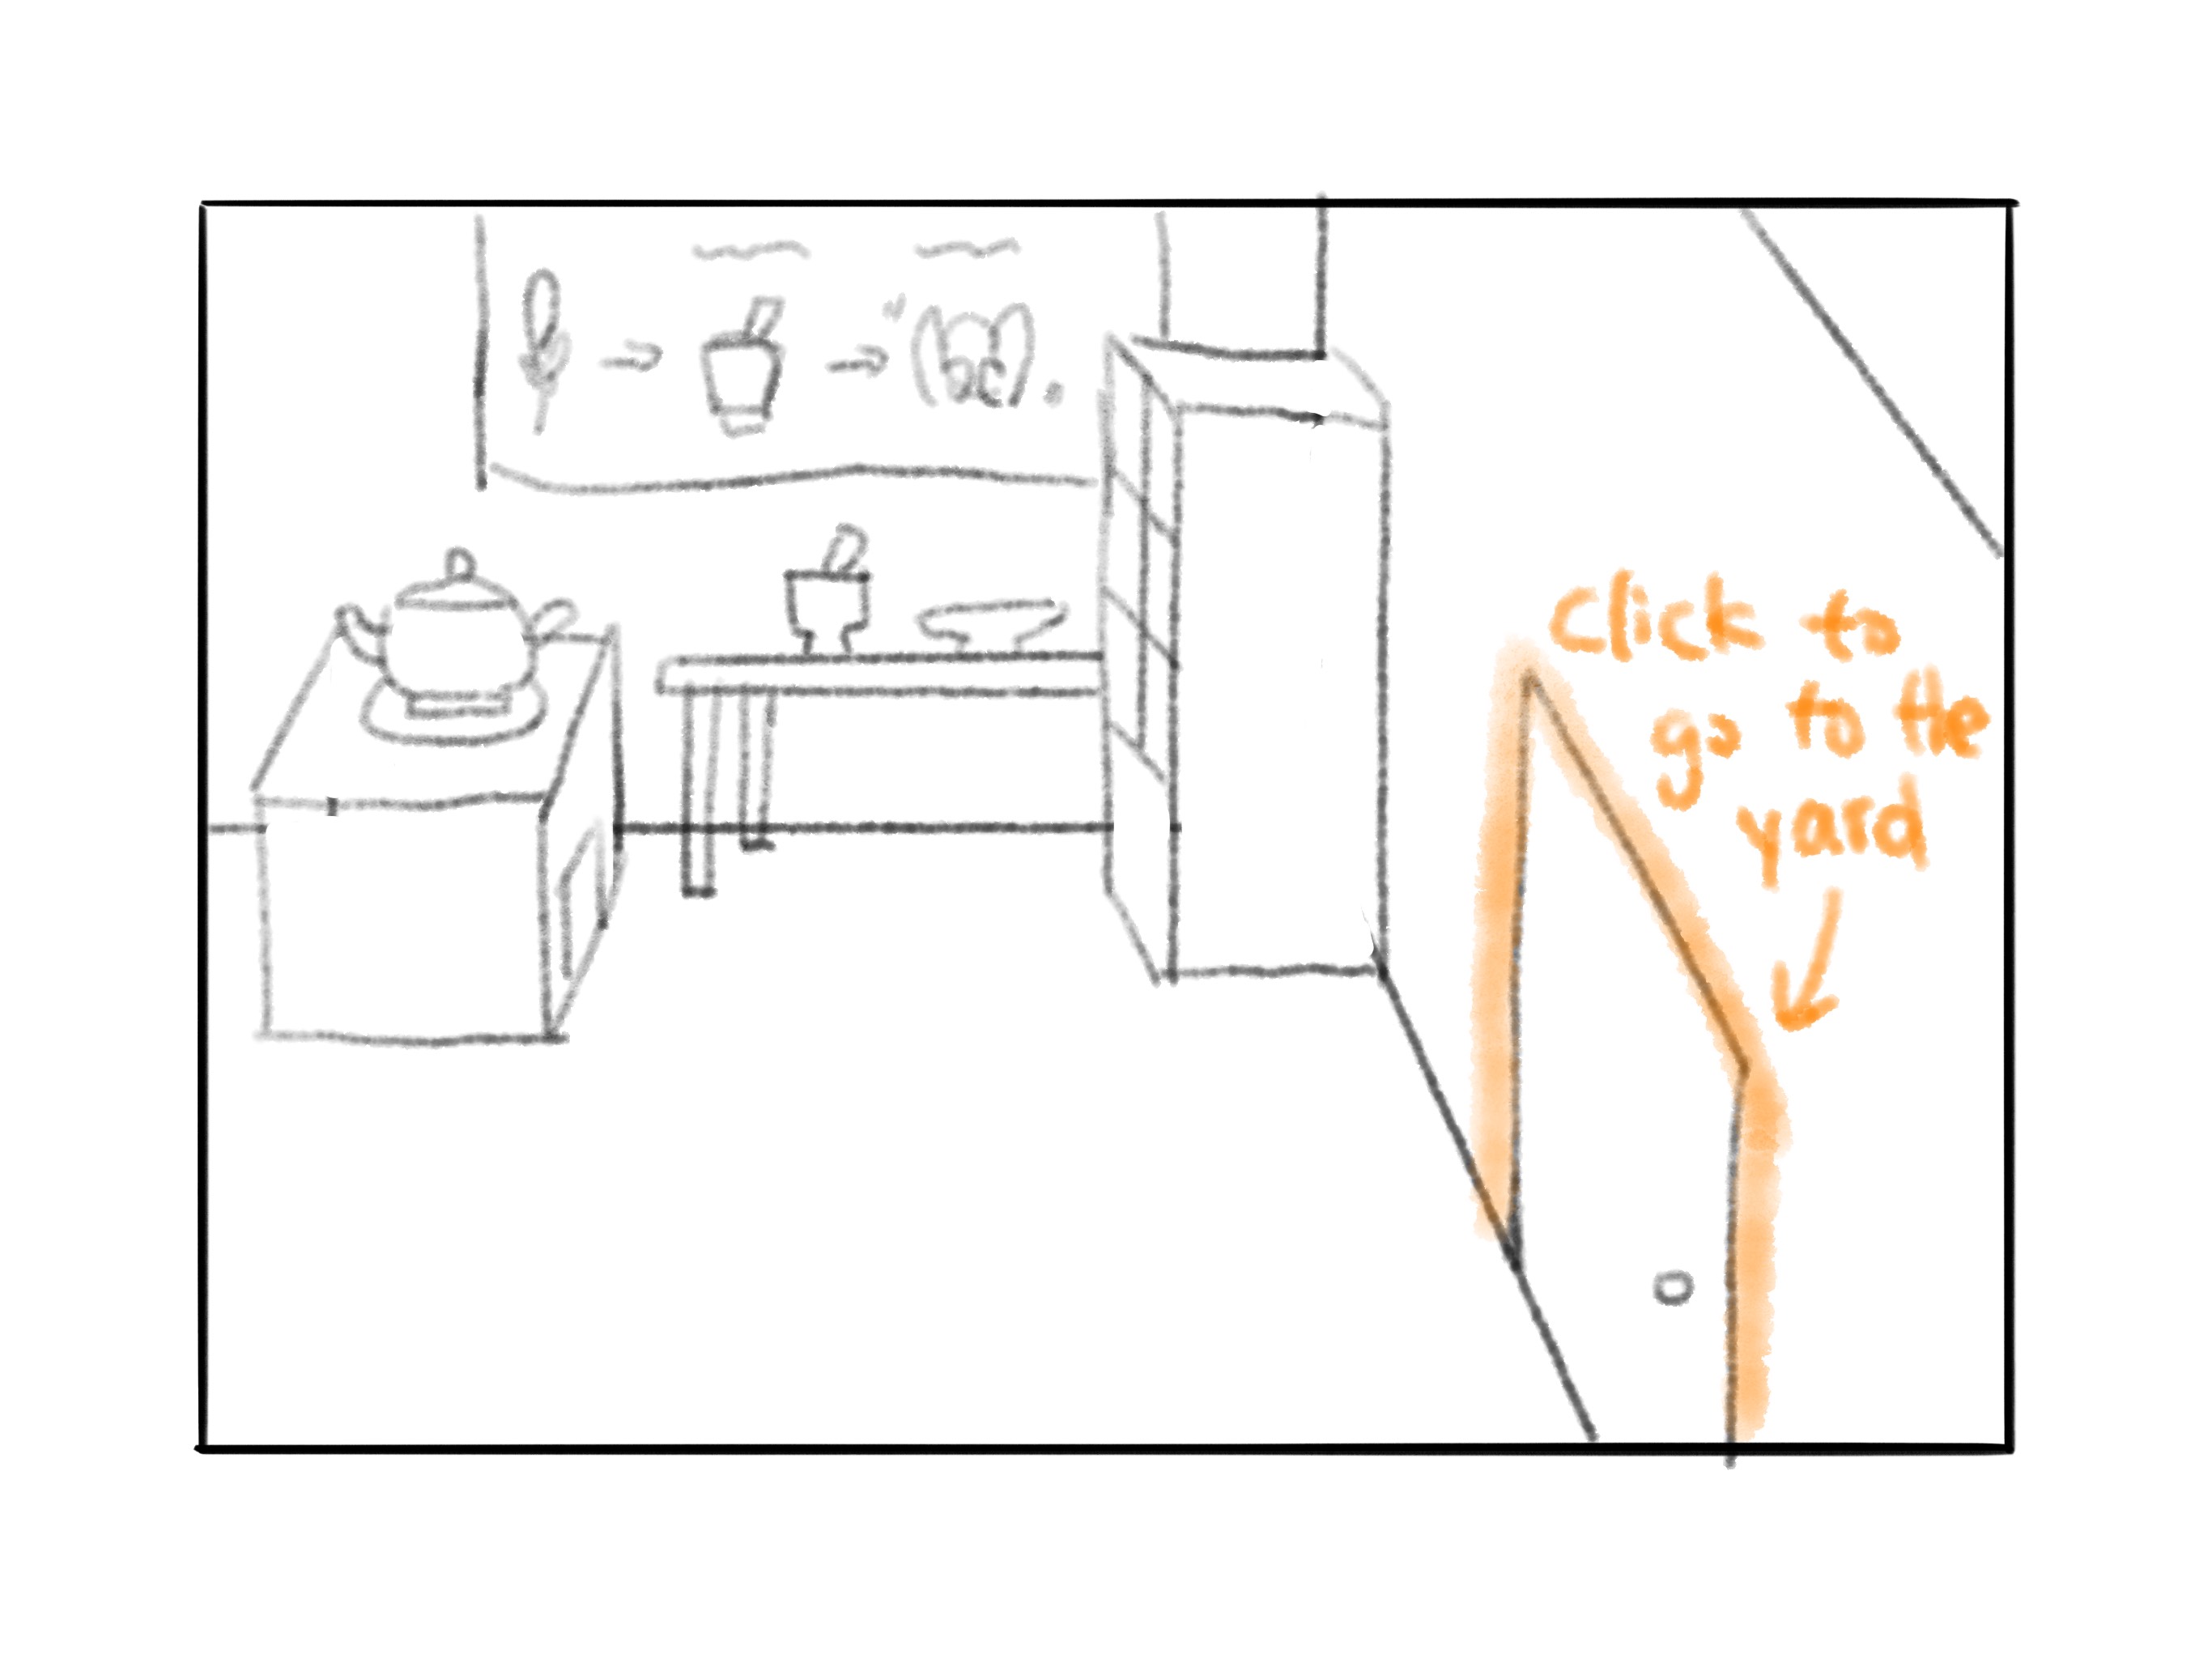 click to
go to the
yard